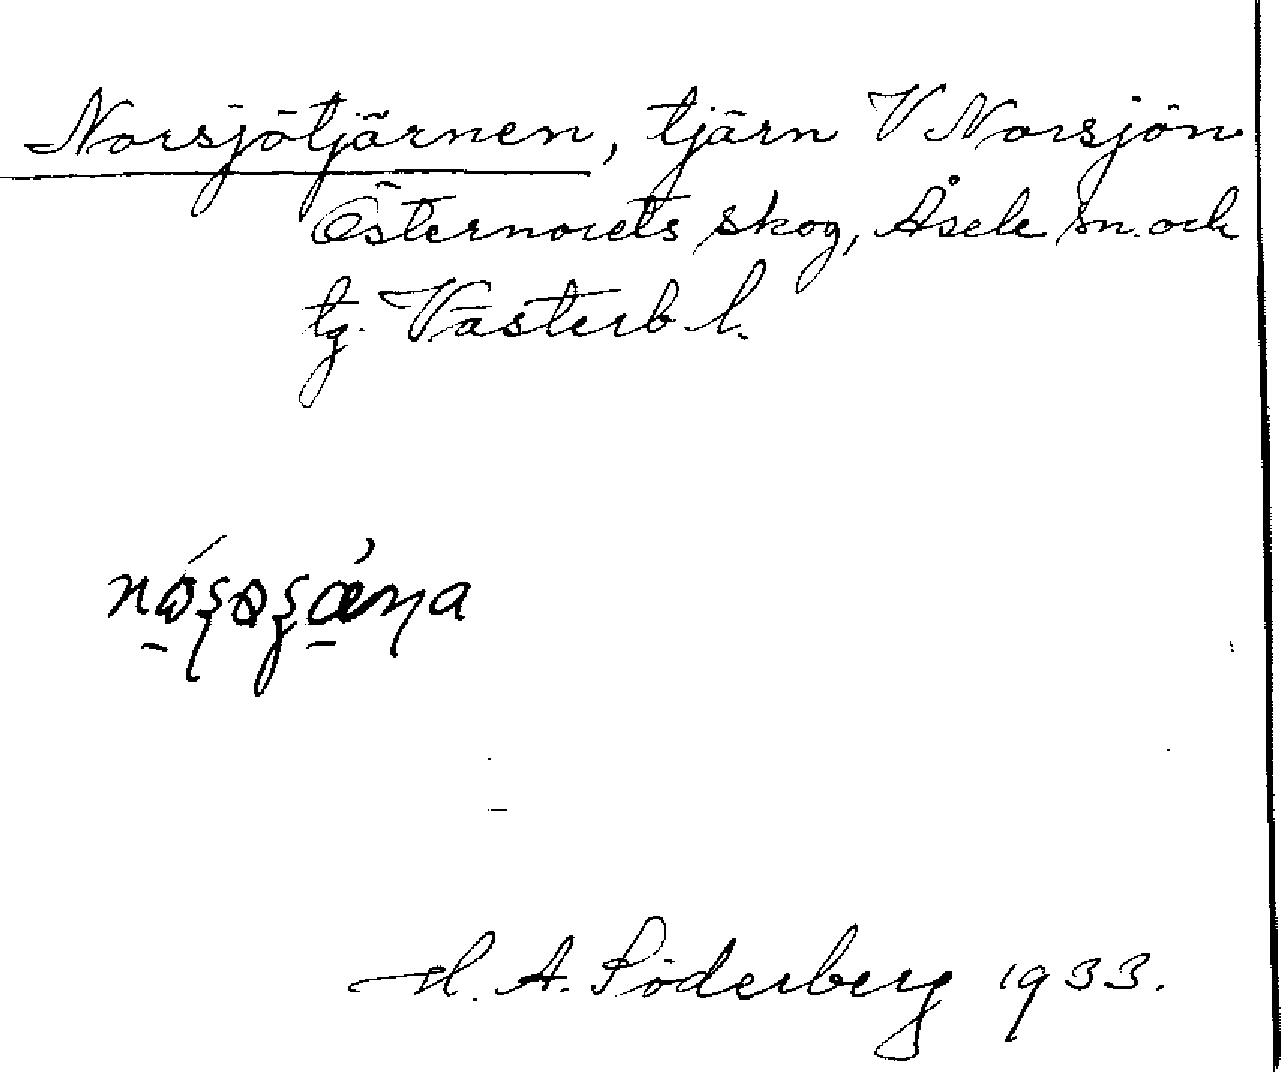 Norsjötjärnen, tjärn V Norsjön
Östernorets skog, Åsele sn. och
tg. Västerb. l.
H. A. Söderberg 1933.